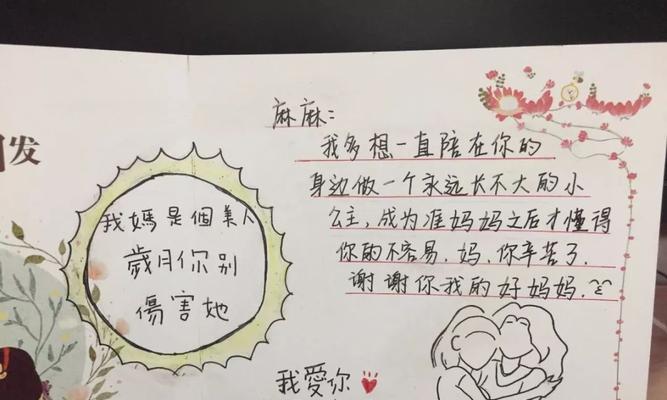 发
我媽是個美人
歲月你別
傷害她
麻麻:
我多想一直陪在你的
身边做一个永远长不大的小
公主,成为准妈妈之后才懂得
你的不容易.妈,你辛苦了.
谢谢你我的好妈妈.
我愛你